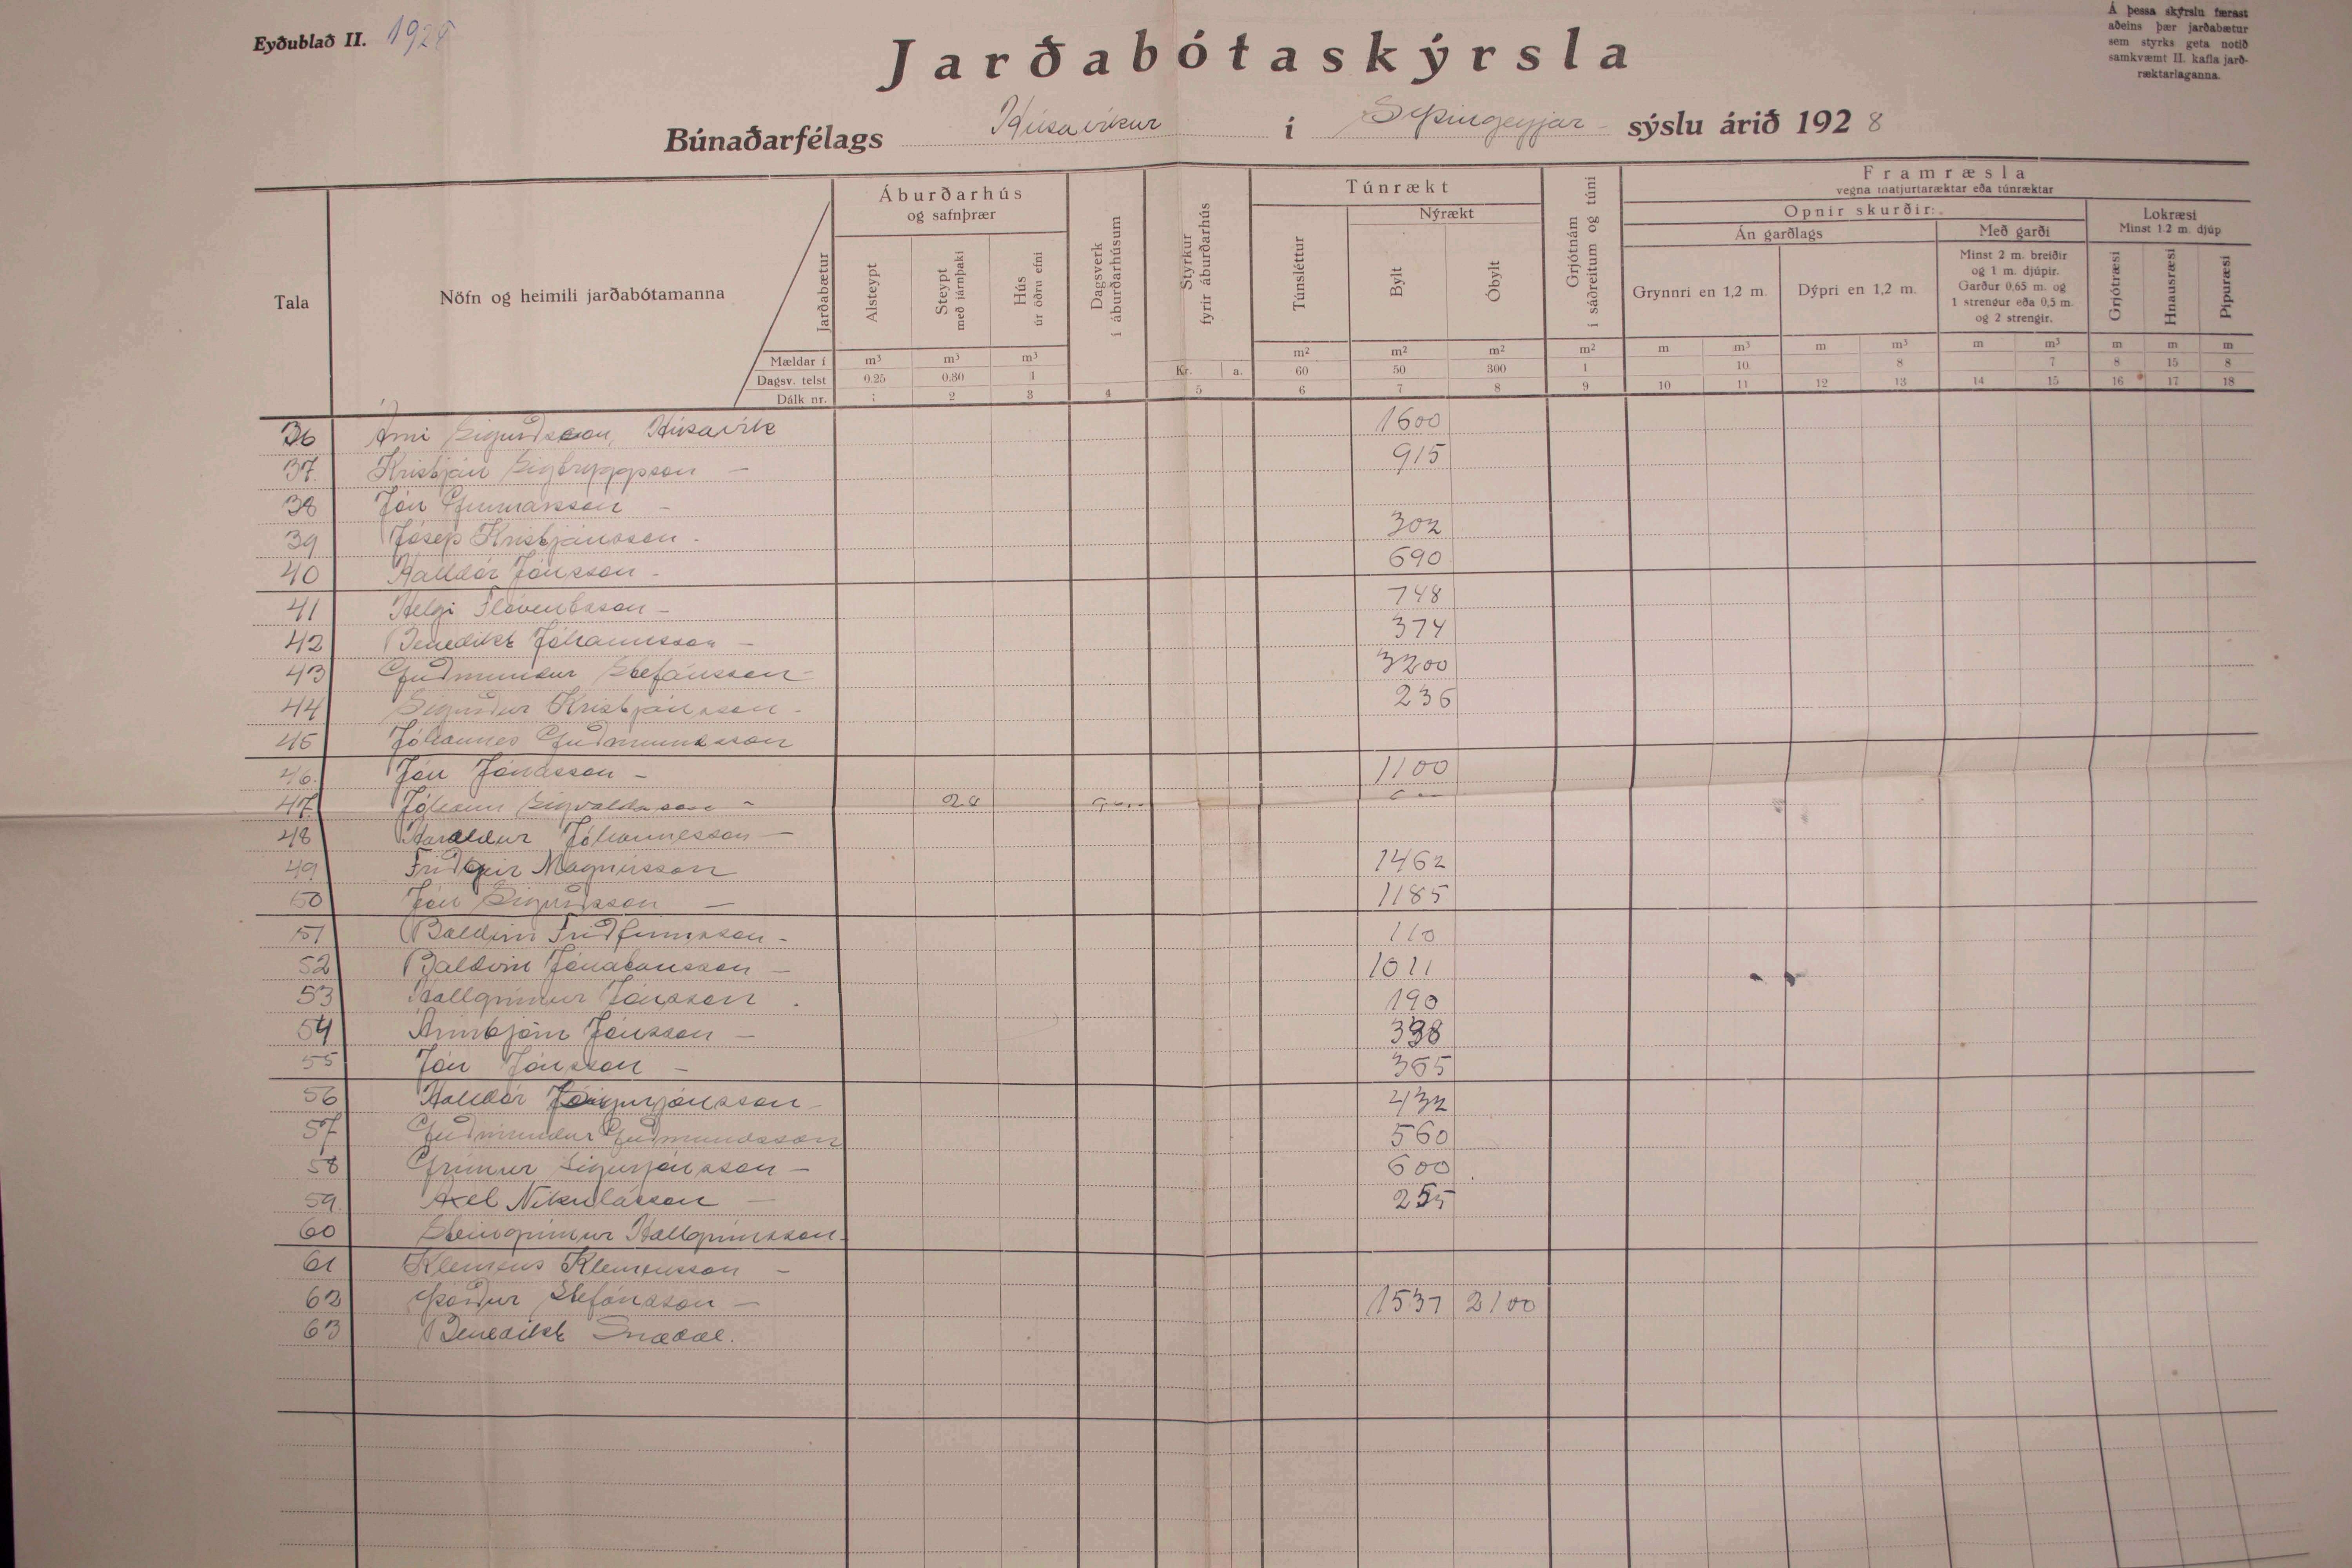 Eyðublað II. 1928
Á þessa skýrslu færast
aðeins þær jarðabætur
sem styrks geta notið
samkvæmt II. kafla jarð-
ræktarlaganna.
Jarðabótaskýrsla
Búnaðarfélags Húsavíkur í S. Þingeyjar - sýslu árið 1928
Tala
Nöfn og heimili jarðabótamanna
Jarðabætur
Mældar í
Dagsv. telst
Dálk nr.
Áburðarhús
og safnþrær
Alsteypt
Steypt
með járnþaki
Hús
úr öðru efni
Dagsverk
í áburðarhúsum
Styrkur
fyrir áburðarhús
Túnrækt
Túnsléttur
Nýrækt
Bylt
Óbylt
Grjótnám
í sáðreitum og túni
Framræsla
vegna matjurtaræktar eða túnræktar
Opnir skurðir:
Án garðlags
Grynnri en 1,2 m.
Dýpri en 1,2 m.
Með garði
Minst 2 m. breiðir
og 1 m. djúpir.
Garður 0,65 m. og
1 strengur eða 0,5 m.
og 2 strengir.
Lokræsi
Minst 1.2 m. djúp
Grjótræsi
Hnausræsi
Pípuræsi
m³ m³ m³ m² m² m² m² m m³ m m³ m m³ m m m
0.25 0.30 1 Kr. a. 60 50 300 1 10 8 7 8 15 8
1 2 3 4 5 6 7 8 9 10 11 12 13 14 15 16 17 18
36 Árni Sigurdsson, Húsavík 1600
37. Kristján Sigtryggsson - 915
38 Jón Gunnarsson -
39 Jósep Kristjánsson - 302
40 Halldór Jónsson - 690
41 Helgi Flóventsson - 748
42 Benedikt Jóhannsson - 374
43 Guðmundur Stefánsson - 3200
44 Sigurður Kristjánsson - 236
45 Jóhannes Guðmundsson
46. Jón Jónasson - 1100
47. Jóhann Sigvaldason - 28
48 Haraldur Jóhannesson -
49 Friðgeir Magnússon 1462
50 Jón Sigurðsson - 1185
51 Baldvin Friðfinnsson - 110
52 Baldvin Jónatansson - 1011
53 Hallgrímur Jónasson - 190
54 Arinbjörn Jónsson - 338
55 Jón Jónsson - 365
56 Halldór Sigurjónsson - 432
57 Guðmundur Guðmundsson 560
58 Grímur Sigurjónsson - 600
59. Axel Nikulásson - 255
60 Steingrímur Hallgrímsson -
61 Klemens Klemensson -
62 Þórður Stefánsson - 1537 2100
63 Benedikt Snædal.